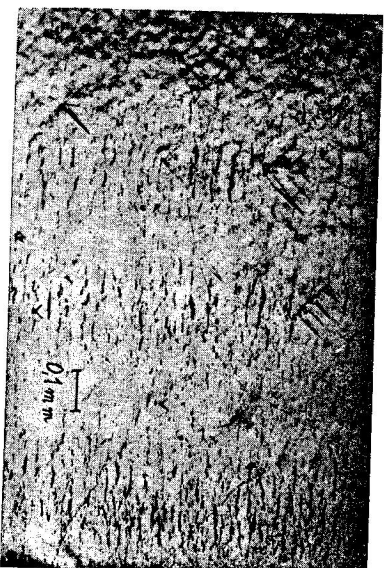 0,1 mm